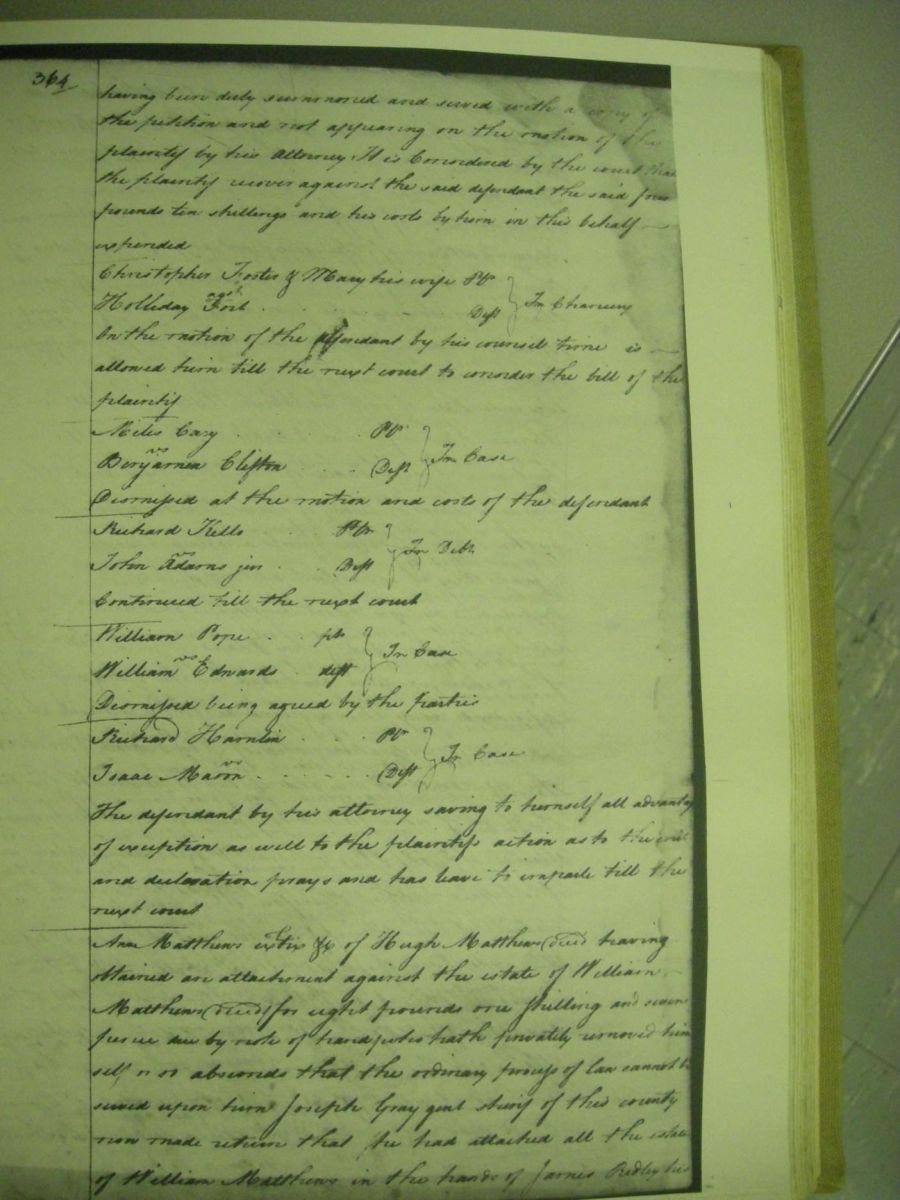 364
having been duly summoned and served with a copy of
the petition and not appearing on the motion of the
plaintif by his attorney. It is Considered by the court that
the plaintif recover against the said defendant the said four
pounds ten shillings and his costs by him in this behalf
expended
Christopher Foster & Mary his wife Pts
agst In Chancery
Holliday Fort Deft
On the motion of the defendant by his counsel time is
allowed him till the next court to consider the bill of the
plaintif
Miles Cary Pt
vs In Case
Benjamen Clifton Deft
Dismissed at the motion and costs of the defendant
Richard Kello Ptr
vs In Debt
John Adams jun Deft
Continued till the next court
William Pope plt
vs In Case
William Edwards deft
Dismissed being agreed by the parties
Richard Hamlin Pt
vs In Case
Isaac Mason Deft
The defendant by his attorney saving to himself all advantage
of exception as well to the plaintifs action as to the writ
and declaration prays and has leave to imparle till the
next court
Ann Matthews extix &c of Hugh Matthews decd having
obtained an attachment against the estate of William
Matthews (decd) for eight pounds one shilling and seven
pence due by note of hand who hath privately removed him
self or so absconds that the ordinary process of law cannot be
served upon him Joseph Gray gent sherif of this county
now made return that he had attached all the estate
of William Matthews in the hands of James Ridley his